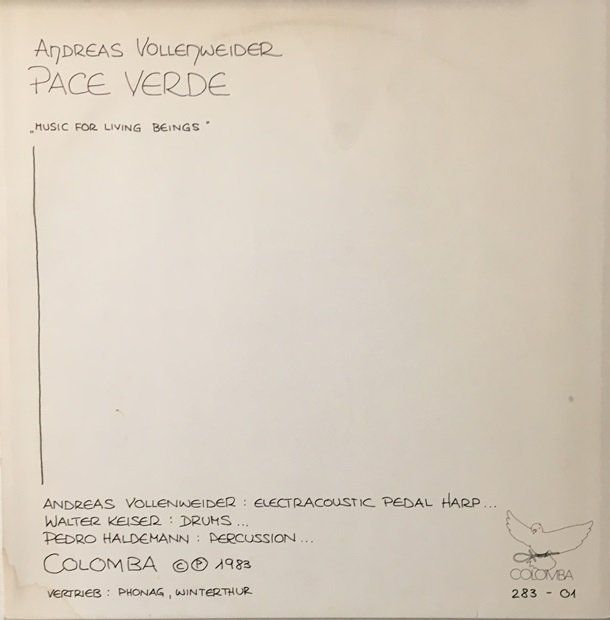 ANDREAS VOLLENWEIDER
PACE VERDE
„MUSIC FOR LIVING BEINGS"
ANDREAS VOLLENWEIDER : ELECTRACOUSTIC PEDAL HARP...
WALTER KEISER : DRUMS...
PEDRO HALDEMANN : PERCUSSION...
COLOMBA ©℗ 1983
VERTRIEB : PHONAG, WINTERTHUR
COLOMBA
283 - 01